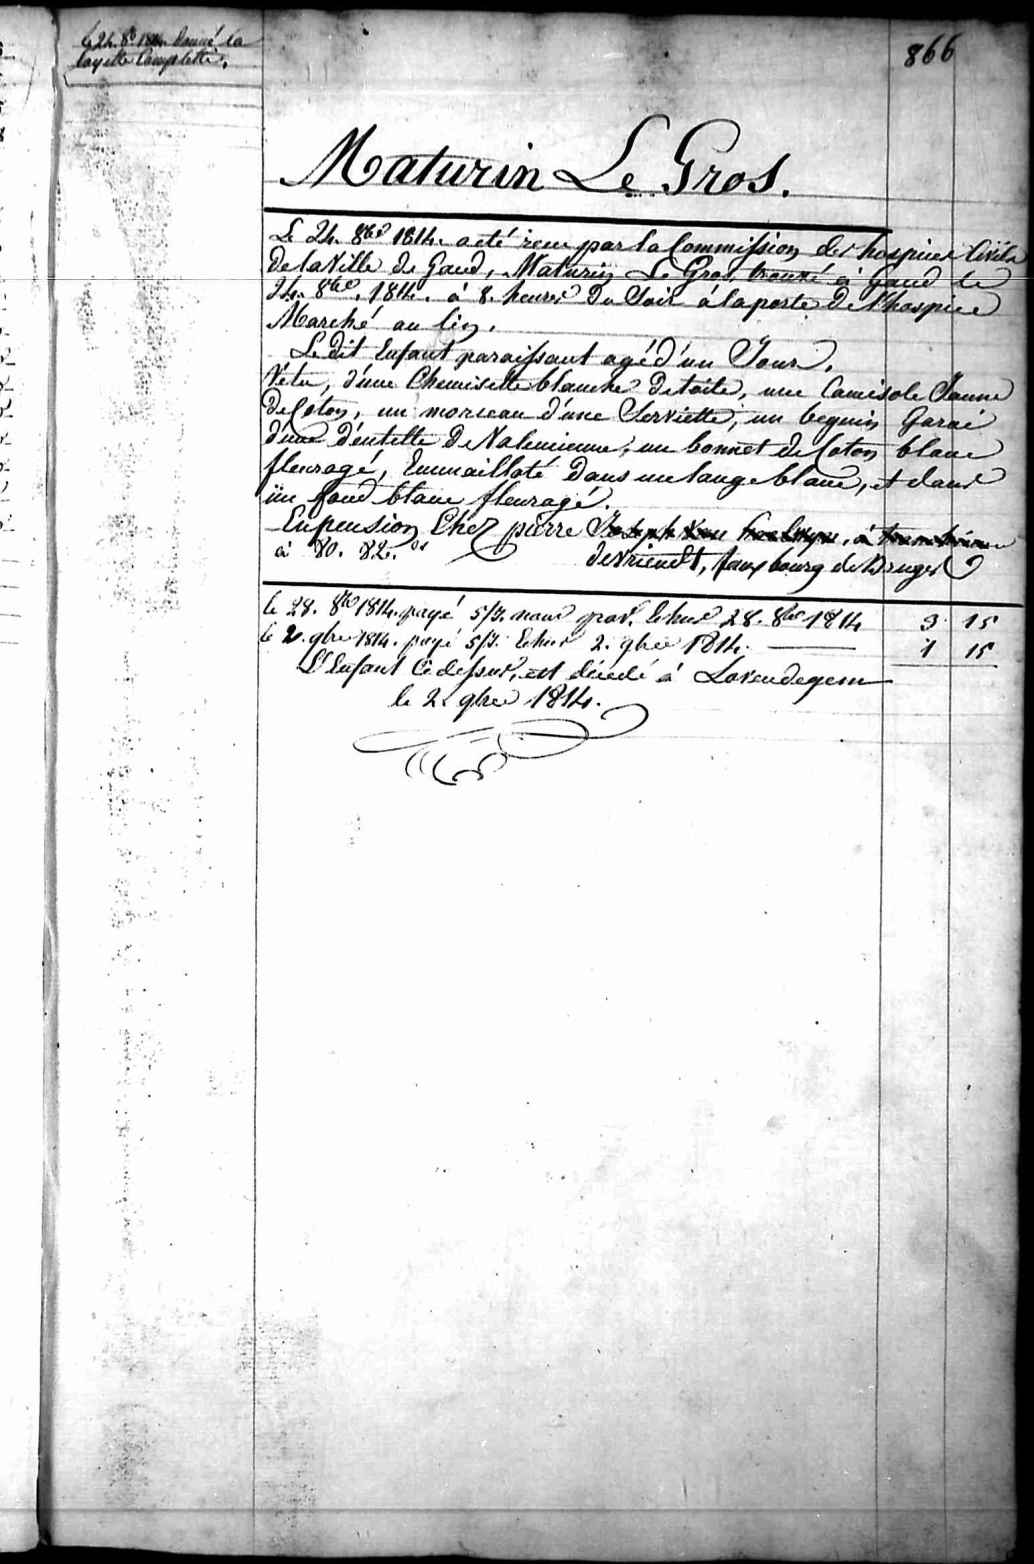 Le 24. 8e 1814. Donné la
layette Complette.
866
Maturin Le Gros.
Le 24. 8bre 1814. a eté recu par la Commission des hospices Civils
de la Ville de Gand, Maturin Le Gros trouvé à Gand le
24. 8bre. 1814. à 8. heures du Soir à la porte de l'hospice
Marché au lin.
Le dit Enfant paraissant agé d'un Jour.
Vétu, d'une Chemisette blanche de toile, une Camisole Jaune
de Coton, un morceau d'une Serviette, un beguin Garni
d'une d'entelle de Valencienne, un bonnet de Coton blanc
fleuragé, Emmailloté dans un lange blanc, et dans
un fond blanc fleuragé.
En pension Chez pierre Joseph Van
à 80. 82. cs devriendt, faux bourg de Bruges
le 28. 8bre 1814. payé 5/7. Echus 28. 8bre 1814 3 15
le 2. 9bre 1814. payé 5/7. Echus 2. 9bre 1814. 1 15
L'Enfant Ci dessus, est décedé à Lovendegem
le 2. 9bre 1814.